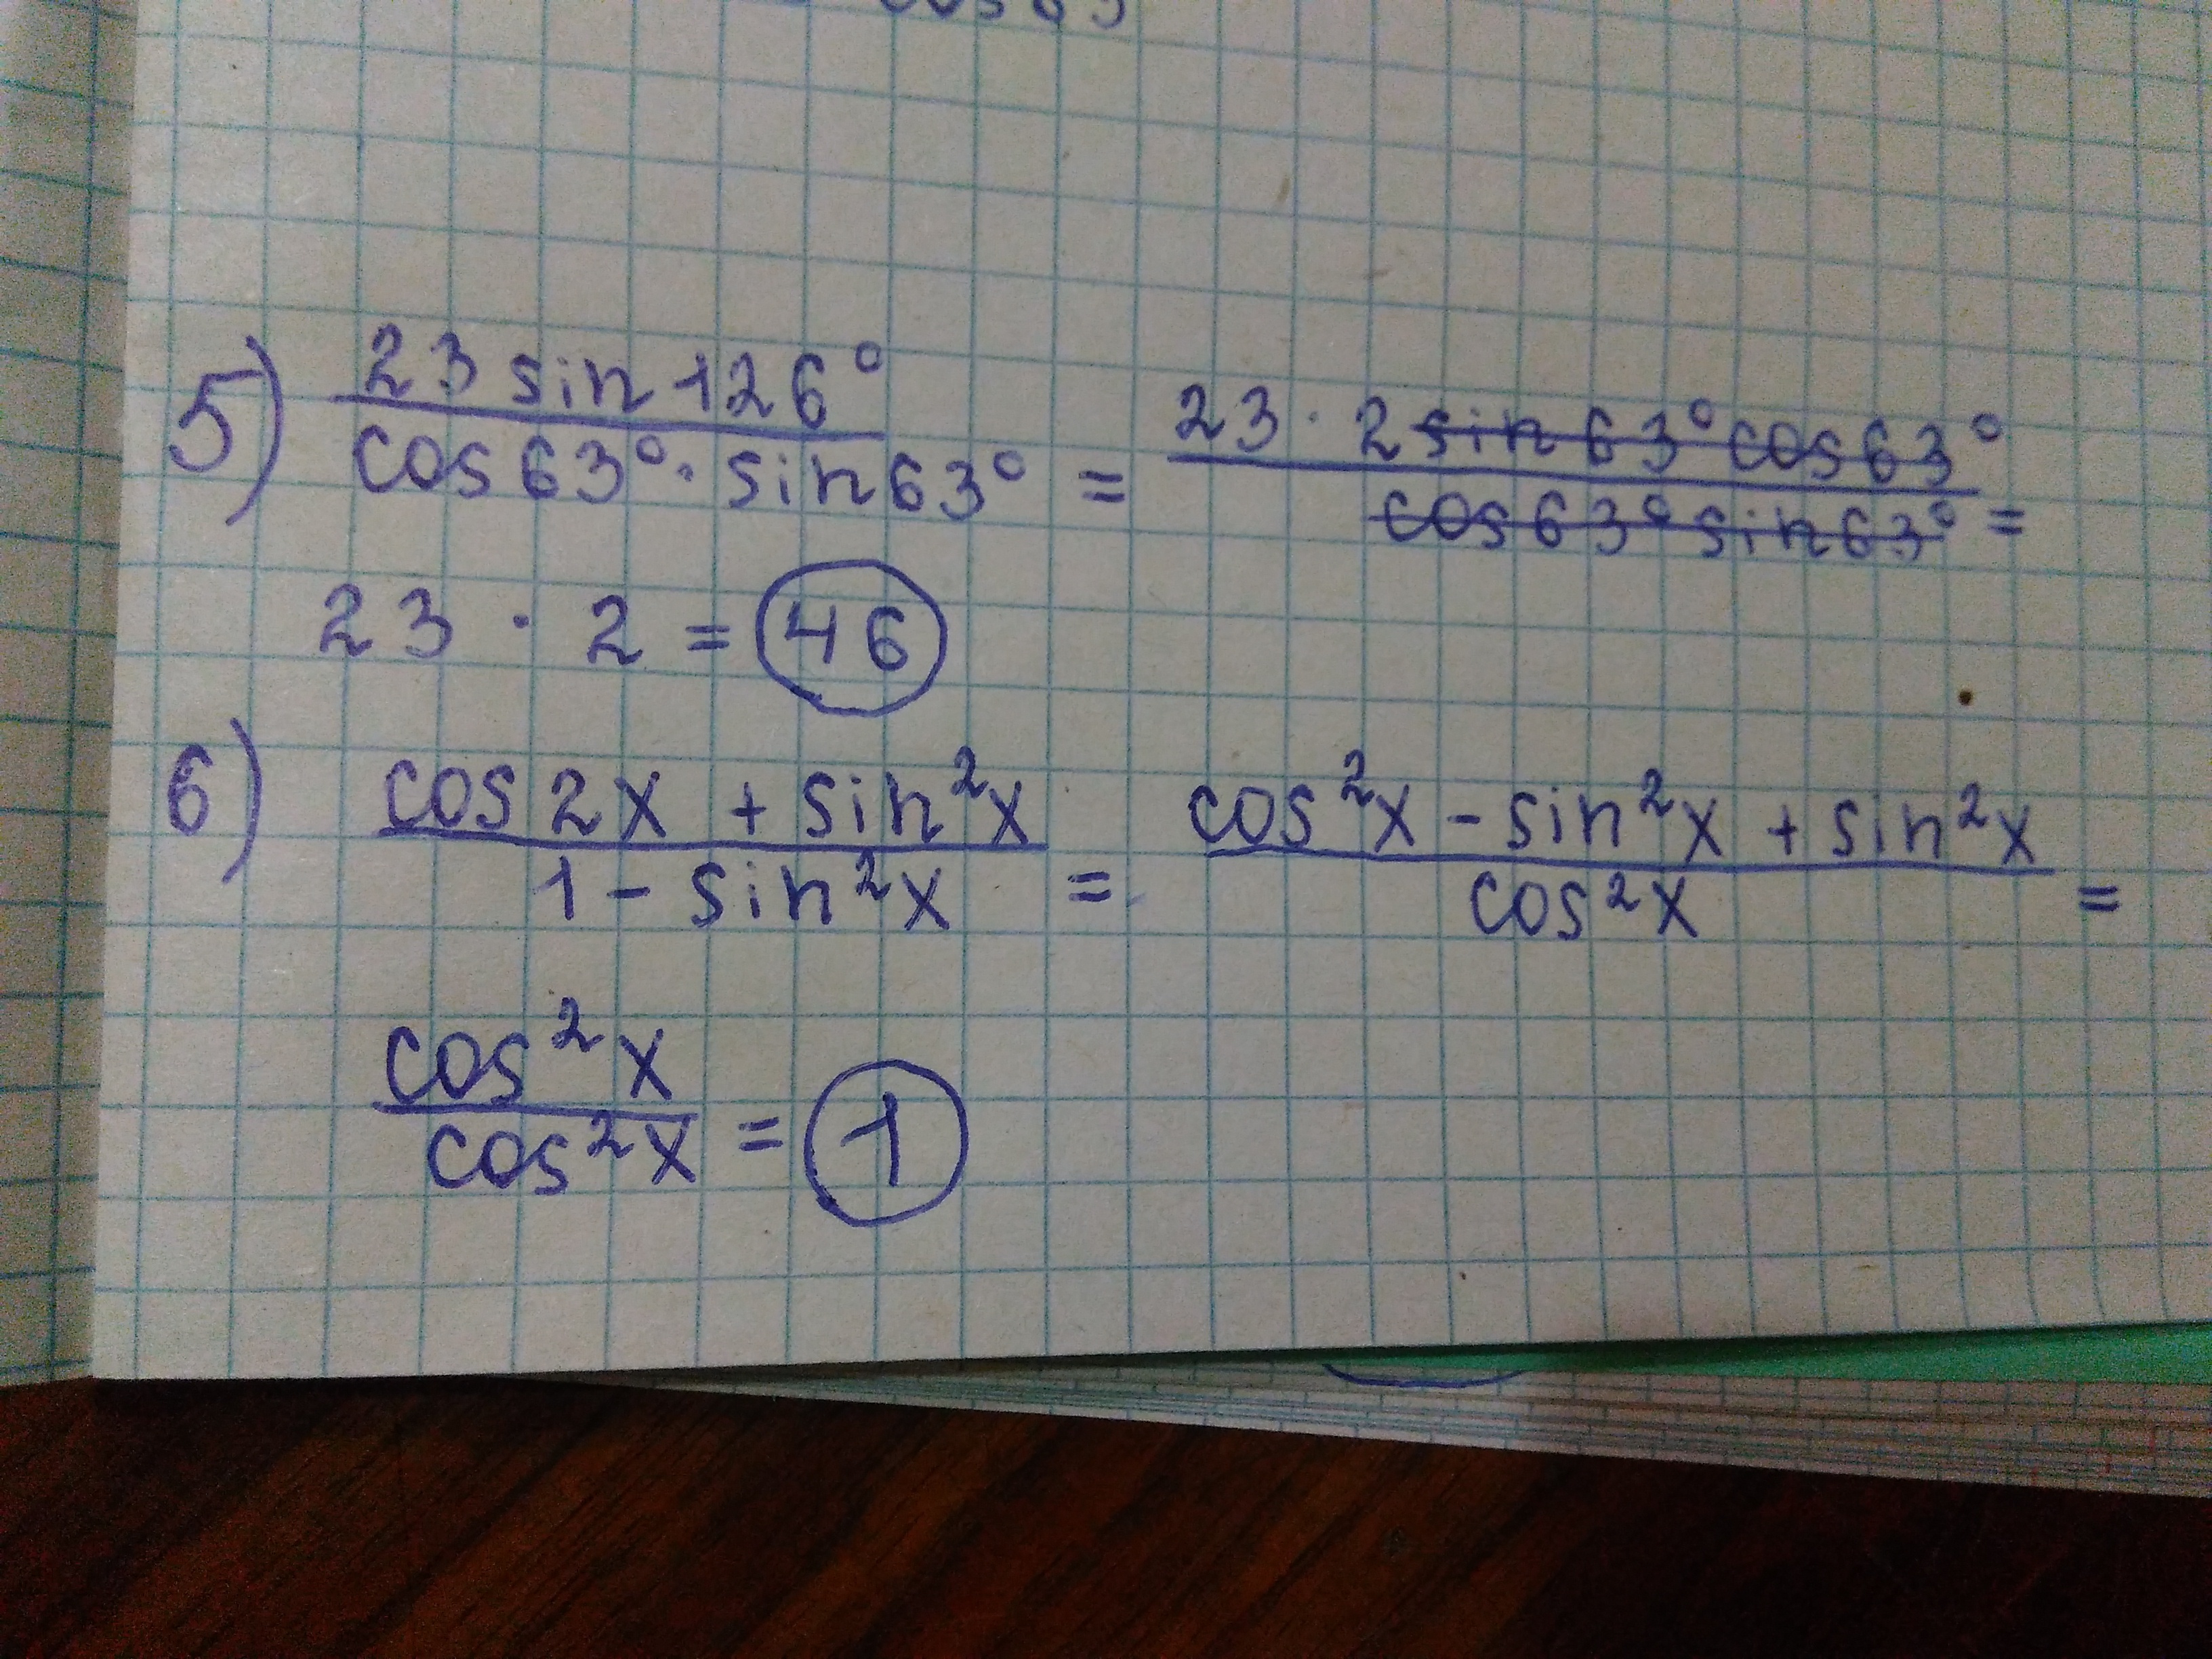 5) 23 sin 126° / cos 63° · sin 63° = 23 · 2 sin 63° cos 63° / cos 63° sin 63° =
23 · 2 = 46
6) cos 2x + sin²x / 1 - sin²x = cos²x - sin²x + sin²x / cos²x =
cos²x / cos²x = 1